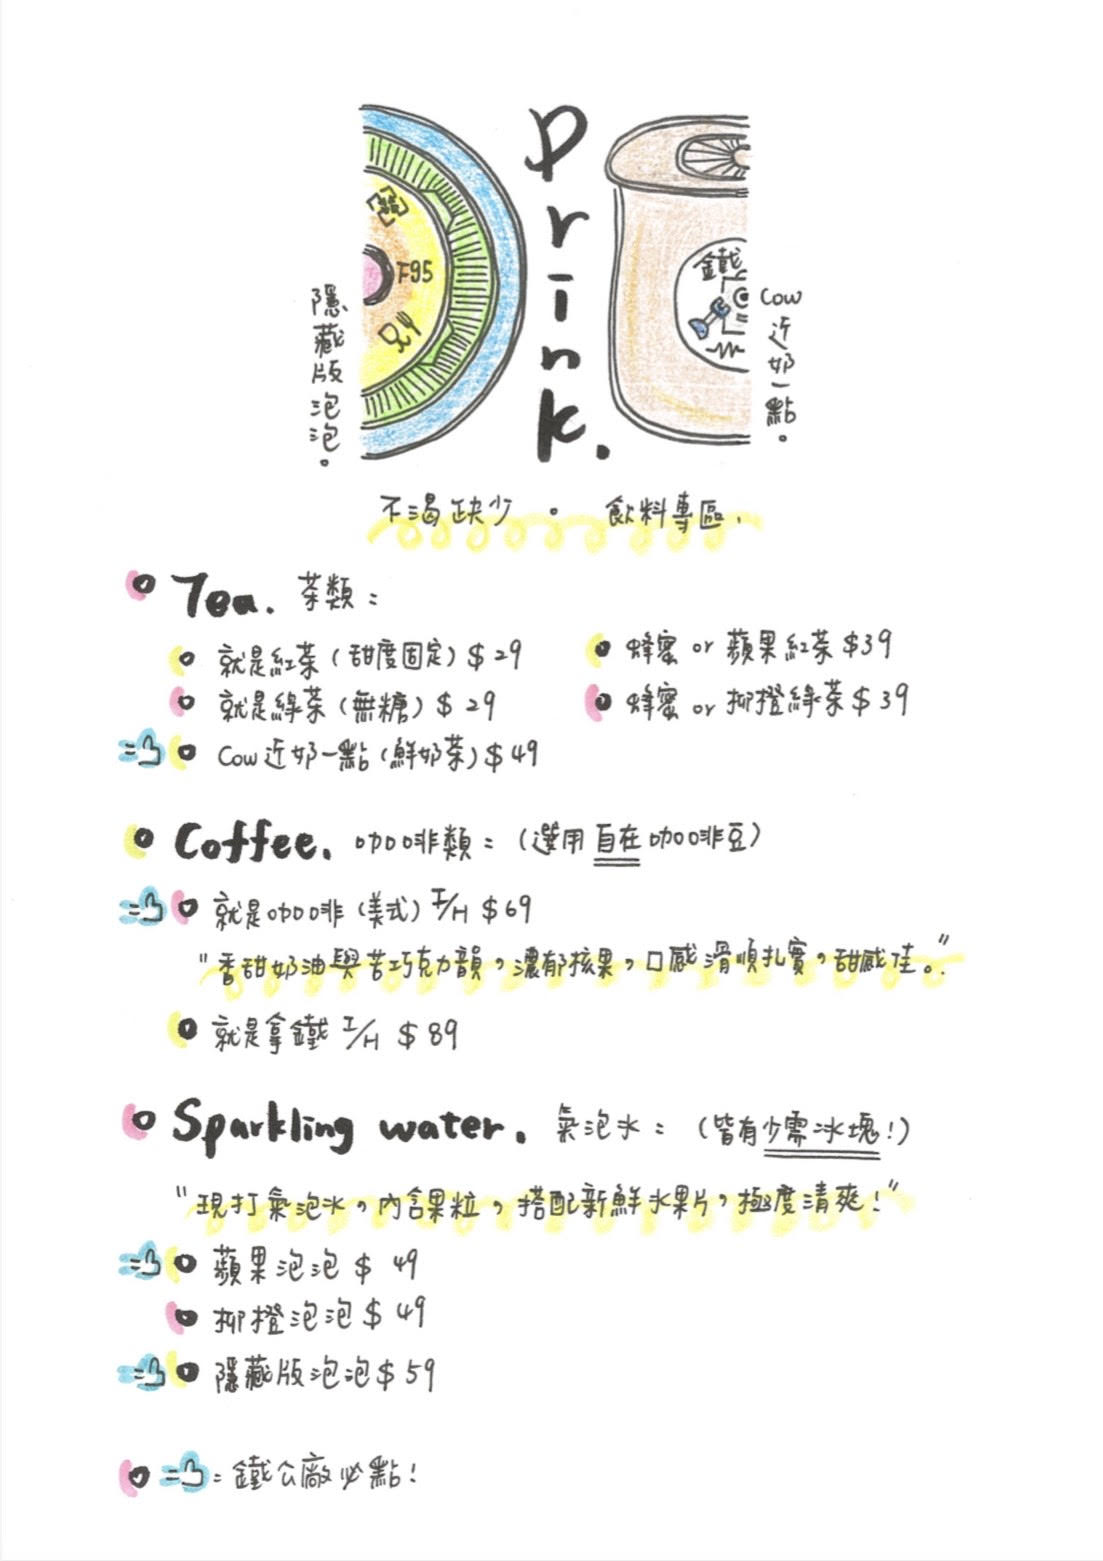 Drink.
隱藏版泡泡。
F95
鐵
Cow近奶一點。
不渴缺少 • 飲料專區.
Tea. 茶類:
就是紅茶(甜度固定)$29
蜂蜜 or 蘋果紅茶$39
就是綠茶(無糖)$29
蜂蜜 or 柳橙綠茶$39
Cow近奶一點(鮮奶茶)$49
Coffee. 咖啡類:(選用自在咖啡豆)
就是咖啡(美式)I/H $69
"香甜奶油與苦巧克力韻,濃郁核果,口感滑順扎實,甜感佳。"
就是拿鐵 I/H $89
Sparkling water. 氣泡水:(皆有少需冰塊!)
"現打氣泡水,內含果粒,搭配新鮮水果片,極度清爽!"
蘋果泡泡$49
柳橙泡泡$49
隱藏版泡泡$59
:鐵公廠必點!